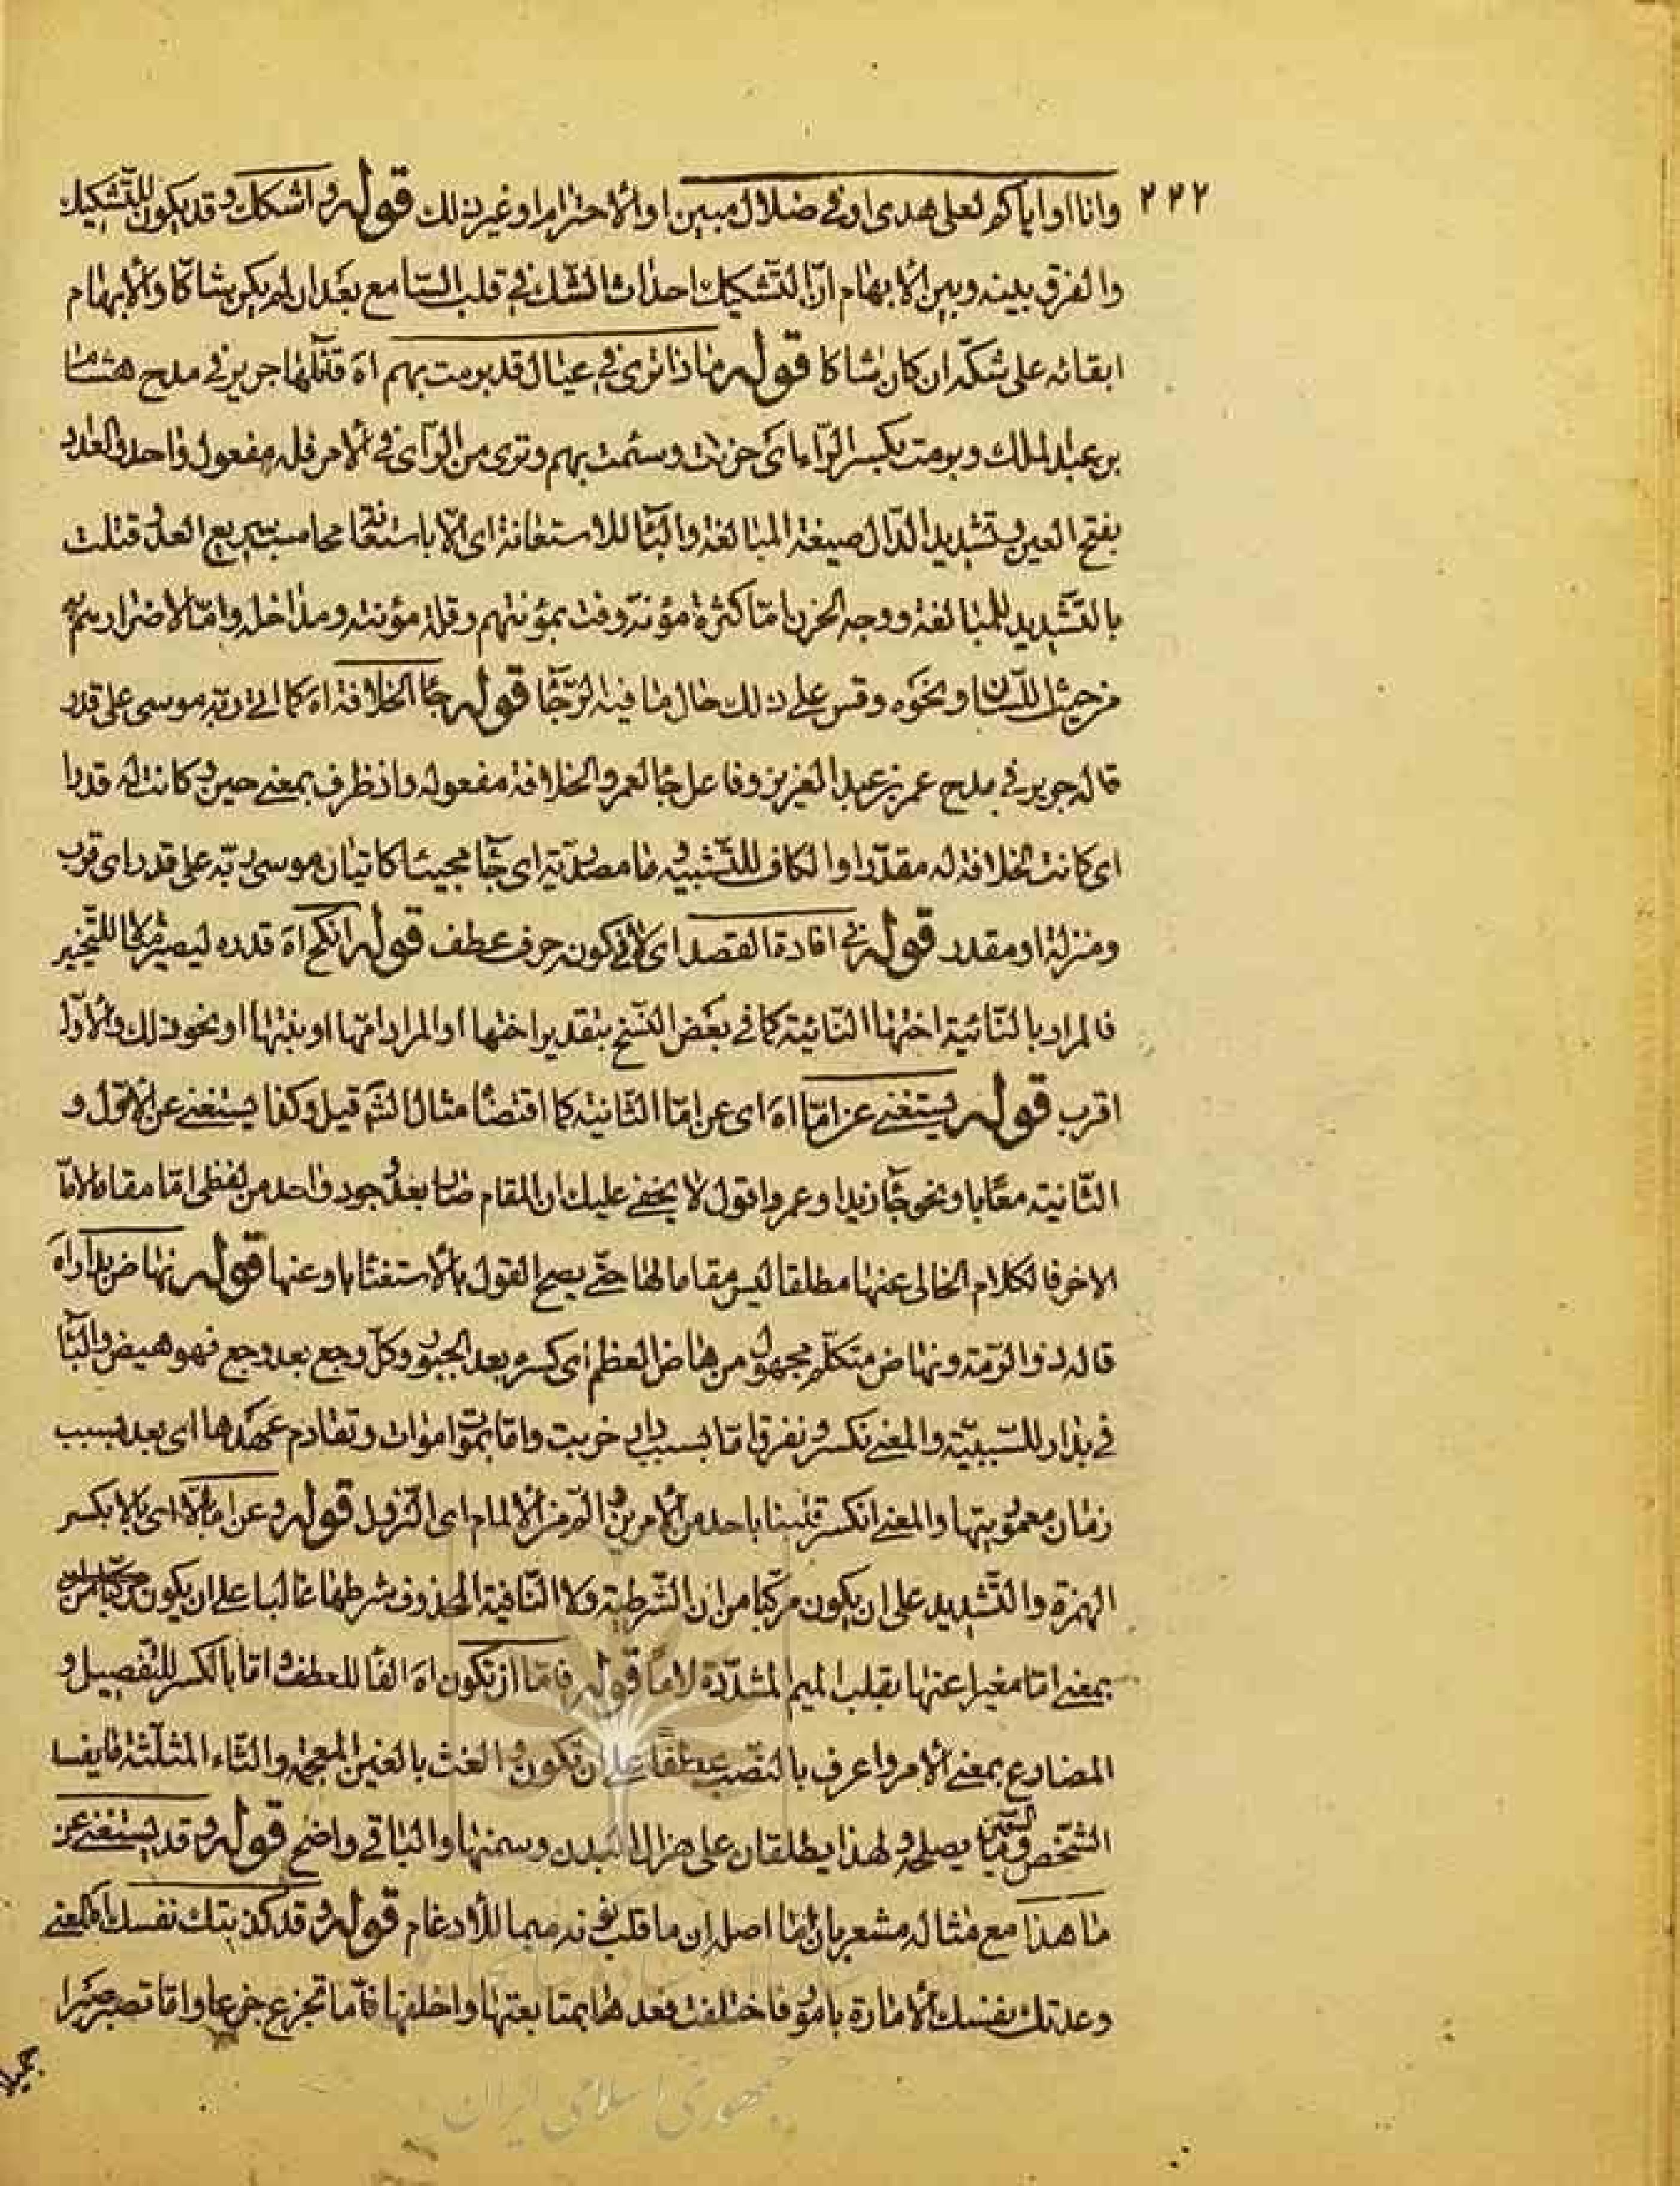 ٢٢٢ وانا او اياكم لعلى هدى او فى ضلال مبين او الاحترام او غير ذلك قوله واشكك وقد يكون للتشكيك
والفرق بينه وبين الابهام ان التشكيك احداث الشك فى قلب السامع بعد ان لم يكن شاكا والابهام
ابقائه على شكه ان كان شاكا قوله ماذا ترى فى عيال قد برمت بهم اه قائلها جرير فى مدح هشام
بن عبد الملك وبرمت بكسر الراء اى حزنت وسئمت بهم وترى من الرأى فى الامر فله مفعول واحد والعداد
بفتح العين وتشديد الدال صيغة المبالغة والباء للاستعانة اى الا باستعانة محاسب سريع العد وقتلت
بالتشديد للمبالغة ووجه الحزن اما كثرة مؤنة وفت بمؤنتهم وقلة مؤنته ومداخله واما لاضراريتهم به
من حيث اللسان ونحوه وقس على ذلك حال ما فيه الرجاء قوله جاء الخلافة اه كما اتى ربه موسى على قدر
قاله جرير فى مدح عمر بن عبد العزيز وفاعل جاء لعمر والخلافة مفعوله واذ ظرف بمعنى حين وكانت له قدرا
اى كانت الخلافة له مقدرا والكاف للتشبيه وما مصدرية اى جاء مجيئا كاتيان موسى ربه على قدر اى قرب
ومنزلة او مقدر قوله فى افادة القصد اى لا فى كونه حرف عطف قوله انكح اه قدره ليصير مثالا للتخيير
فالمراد بالثانية اختها الثانية كما فى بعض النسخ بتقدير اختها او المراد امها او بنتها او نحو ذلك والاول
اقرب قوله يستغنى عن اما اه اى عن اما الثانية كما اقتضاه مثال الشم قيل وكذا يستغنى عن الاولى و
الثانية معا باو نحو جاء زيد او عمرو اقول لا يخفى عليك ان المقام صار بعد وجود واحد من لفظى اما مقاما لاما
الاخر فالكلام الخالى عنها مطلقا ليس مقاما لها حتى يصح القول بالاستغناء باو عنها قوله نهاض بدار اه
قاله ذو الرمة ونهاض متكلم مجهول من هاض العظم اى كسره بعد الجبور وكل وجع بعد وجع فهو هيض والباء
فى بدار للسببية والمعنى نكسر ونفرق اما بسبب دار خربت واما بموت اموات وتقادم عهدها اى بعد بسبب
زمان معموريتها والمعنى انكسر قلبنا باحد من الامرين والم من الالمام اى النزول قوله وعن اما بالا اى بالا بكسر
الهمزة والتشديد على ان يكون مركبا من ان الشرطية ولا النافية المحذوف شرطها غالبا على ان يكون
بمعنى اما مغيرا عنها بقلب الميم المشددة لاما قوله فاما ان تكون اه الفاء للعطف واما بالكسر للتفصيل و
المضارع بمعنى الامر واعرف بالنصب عطفا على ان تكون والغث بالغين المعجمة والثاء المثلثة ما يفسد
الشخص والسمين ما يصلحه ولهذا يطلقان على هزال البدن وسمنها والباقى واضح قوله وقد يستغنى عن
ما هذا مع مثاله مشعر بان اما اصله ان ما قلب نونه ميما للادغام قوله وقد كذبتك نفسك اه المعنى
وعدتك نفسك الامارة بامور فاختلفت فعدها بمتابعتها واخلفها فاما تجزع جزعا واما تصبر صبرا
جميلا
جمهورى اسلامى ايران